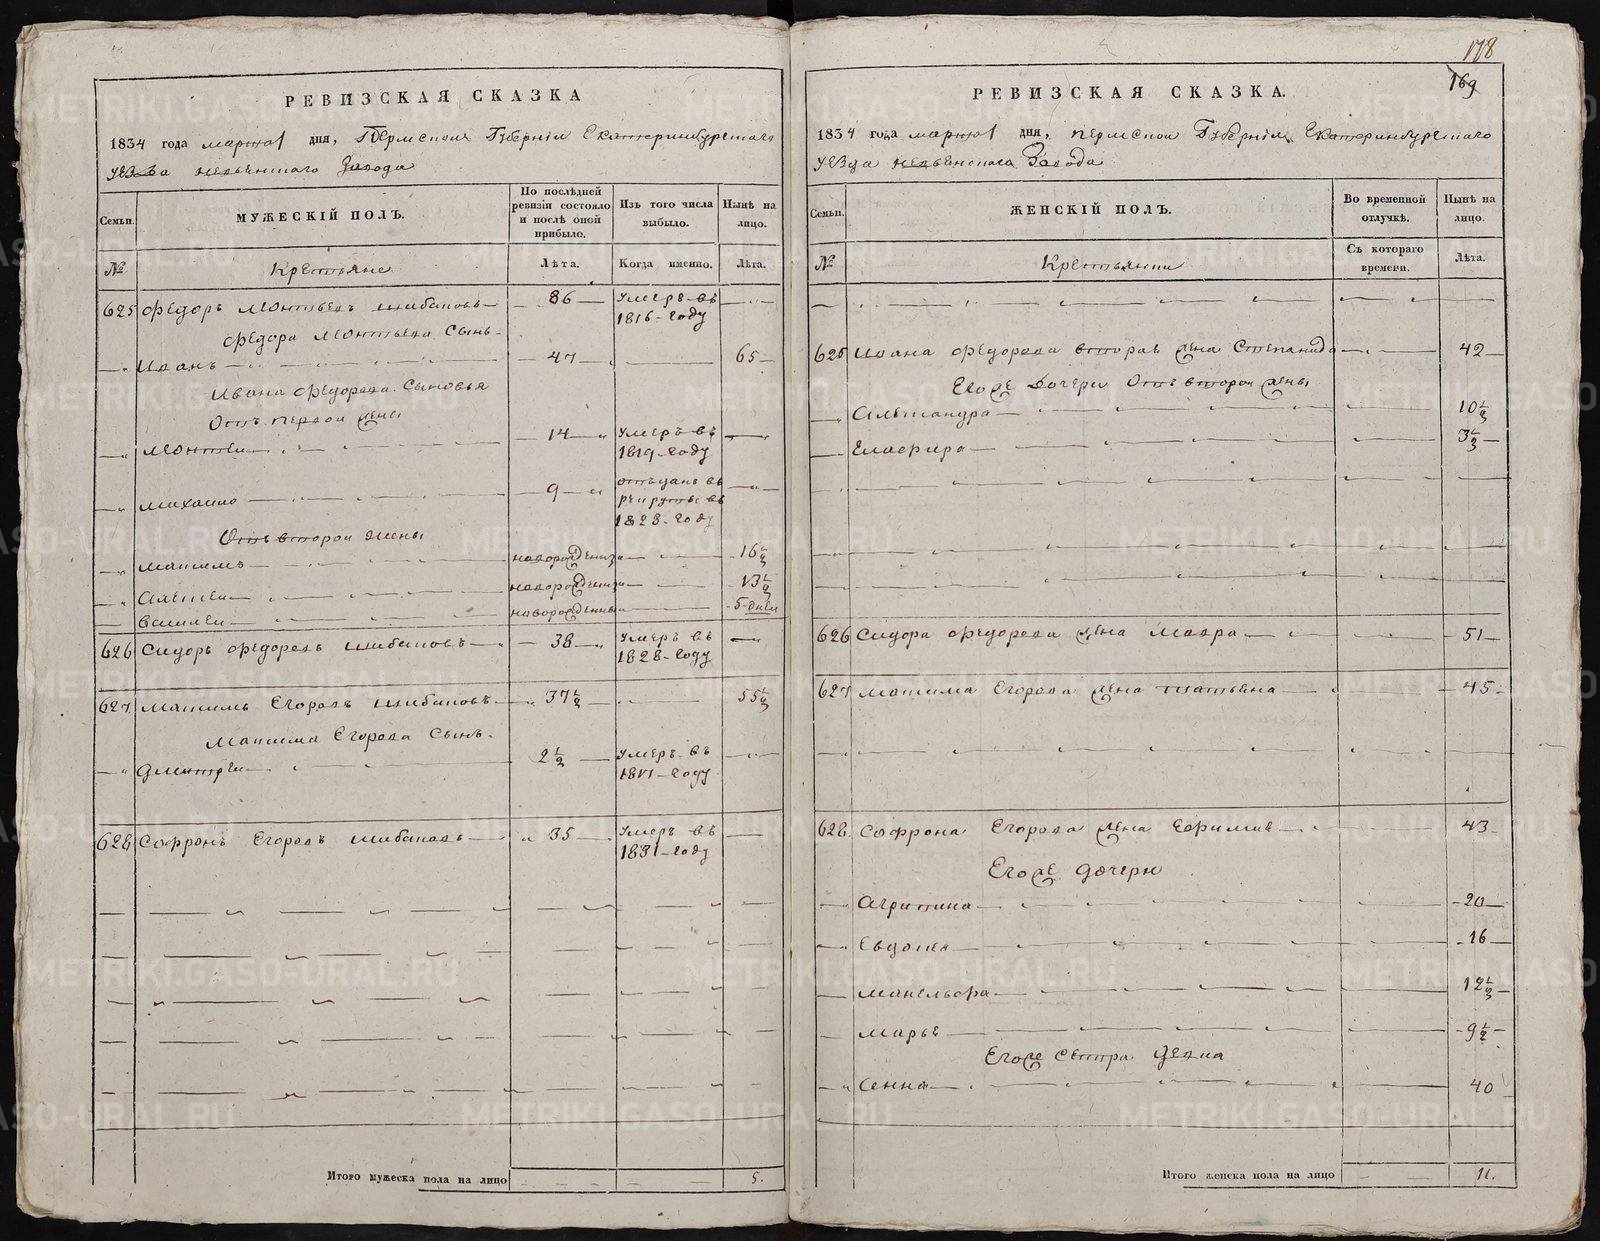 178
169
РЕВИЗСКАЯ СКАЗКА
1834 года марта 1 дня, Пермской Губернiи Екатеринбургскаго
уезда невьянскаго Завода
Семьи.
МУЖЕСКIЙ ПОЛЪ.
По послѣдней ревизiи состояло и послѣ оной прибыло.
Изъ того числа выбыло.
Нынѣ на лицо.
№
Крестьяне
Лѣта.
Когда именно.
Лѣта.
625 Федоръ леонтьевъ шибановъ 86 умеръ въ 1816 году
Федора леонтьева Сынъ
Иванъ 47 65
Ивана федорова Сыновья
Отъ первой жены
леонтей 14 умеръ въ 1819 году
михаило 9 отъданъ въ рекруты въ 1828 году
Отъ второй жены
максимъ новорожденны 16 1/2
Алексей новорожденны 13 1/2
василей новорожденны 5 дней
626 Сидоръ федоровъ шибановъ 38 умеръ въ 1828 году
627 максимъ Егоровъ шибановъ 37 1/2 55 1/2
максима Егорова Сынъ
дмитрей 2 1/2 умеръ въ году
628 Софронъ Егоровъ шибановъ 35 умеръ въ 1831 году
Итого мужеска пола на лицо 5.
РЕВИЗСКАЯ СКАЗКА.
1834 года марта 1 дня, пермской Губернiи Екатеринбургскаго
уезда невьянскаго Завода
Семьи.
ЖЕНСКIЙ ПОЛЪ.
Во временной отлучкѣ.
Нынѣ на лицо.
№
Крестьянки
Съ котораго времени.
Лѣта.
625 Ивана федорова вторая жена Степанида 42
Егоже дочери Отъ второй жены
Александра 10 1/2
Елафира 3 1/2
626 Сидора федорова жена мавра 51
627 максима Егорова жена татьяна 45
628 Софрона Егорова жена Ефимия 43
Егоже дочери
Агрипина 20
Евдокея 16
Манельфа 12 1/2
марья 9 1/2
Егоже сестра девка
40
Итого женска пола на лицо 11.
METRIKI.GASO-URAL.RU